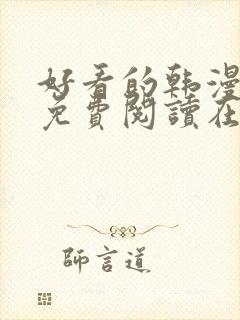 好看的韩漫
免費閱讀在
師言道